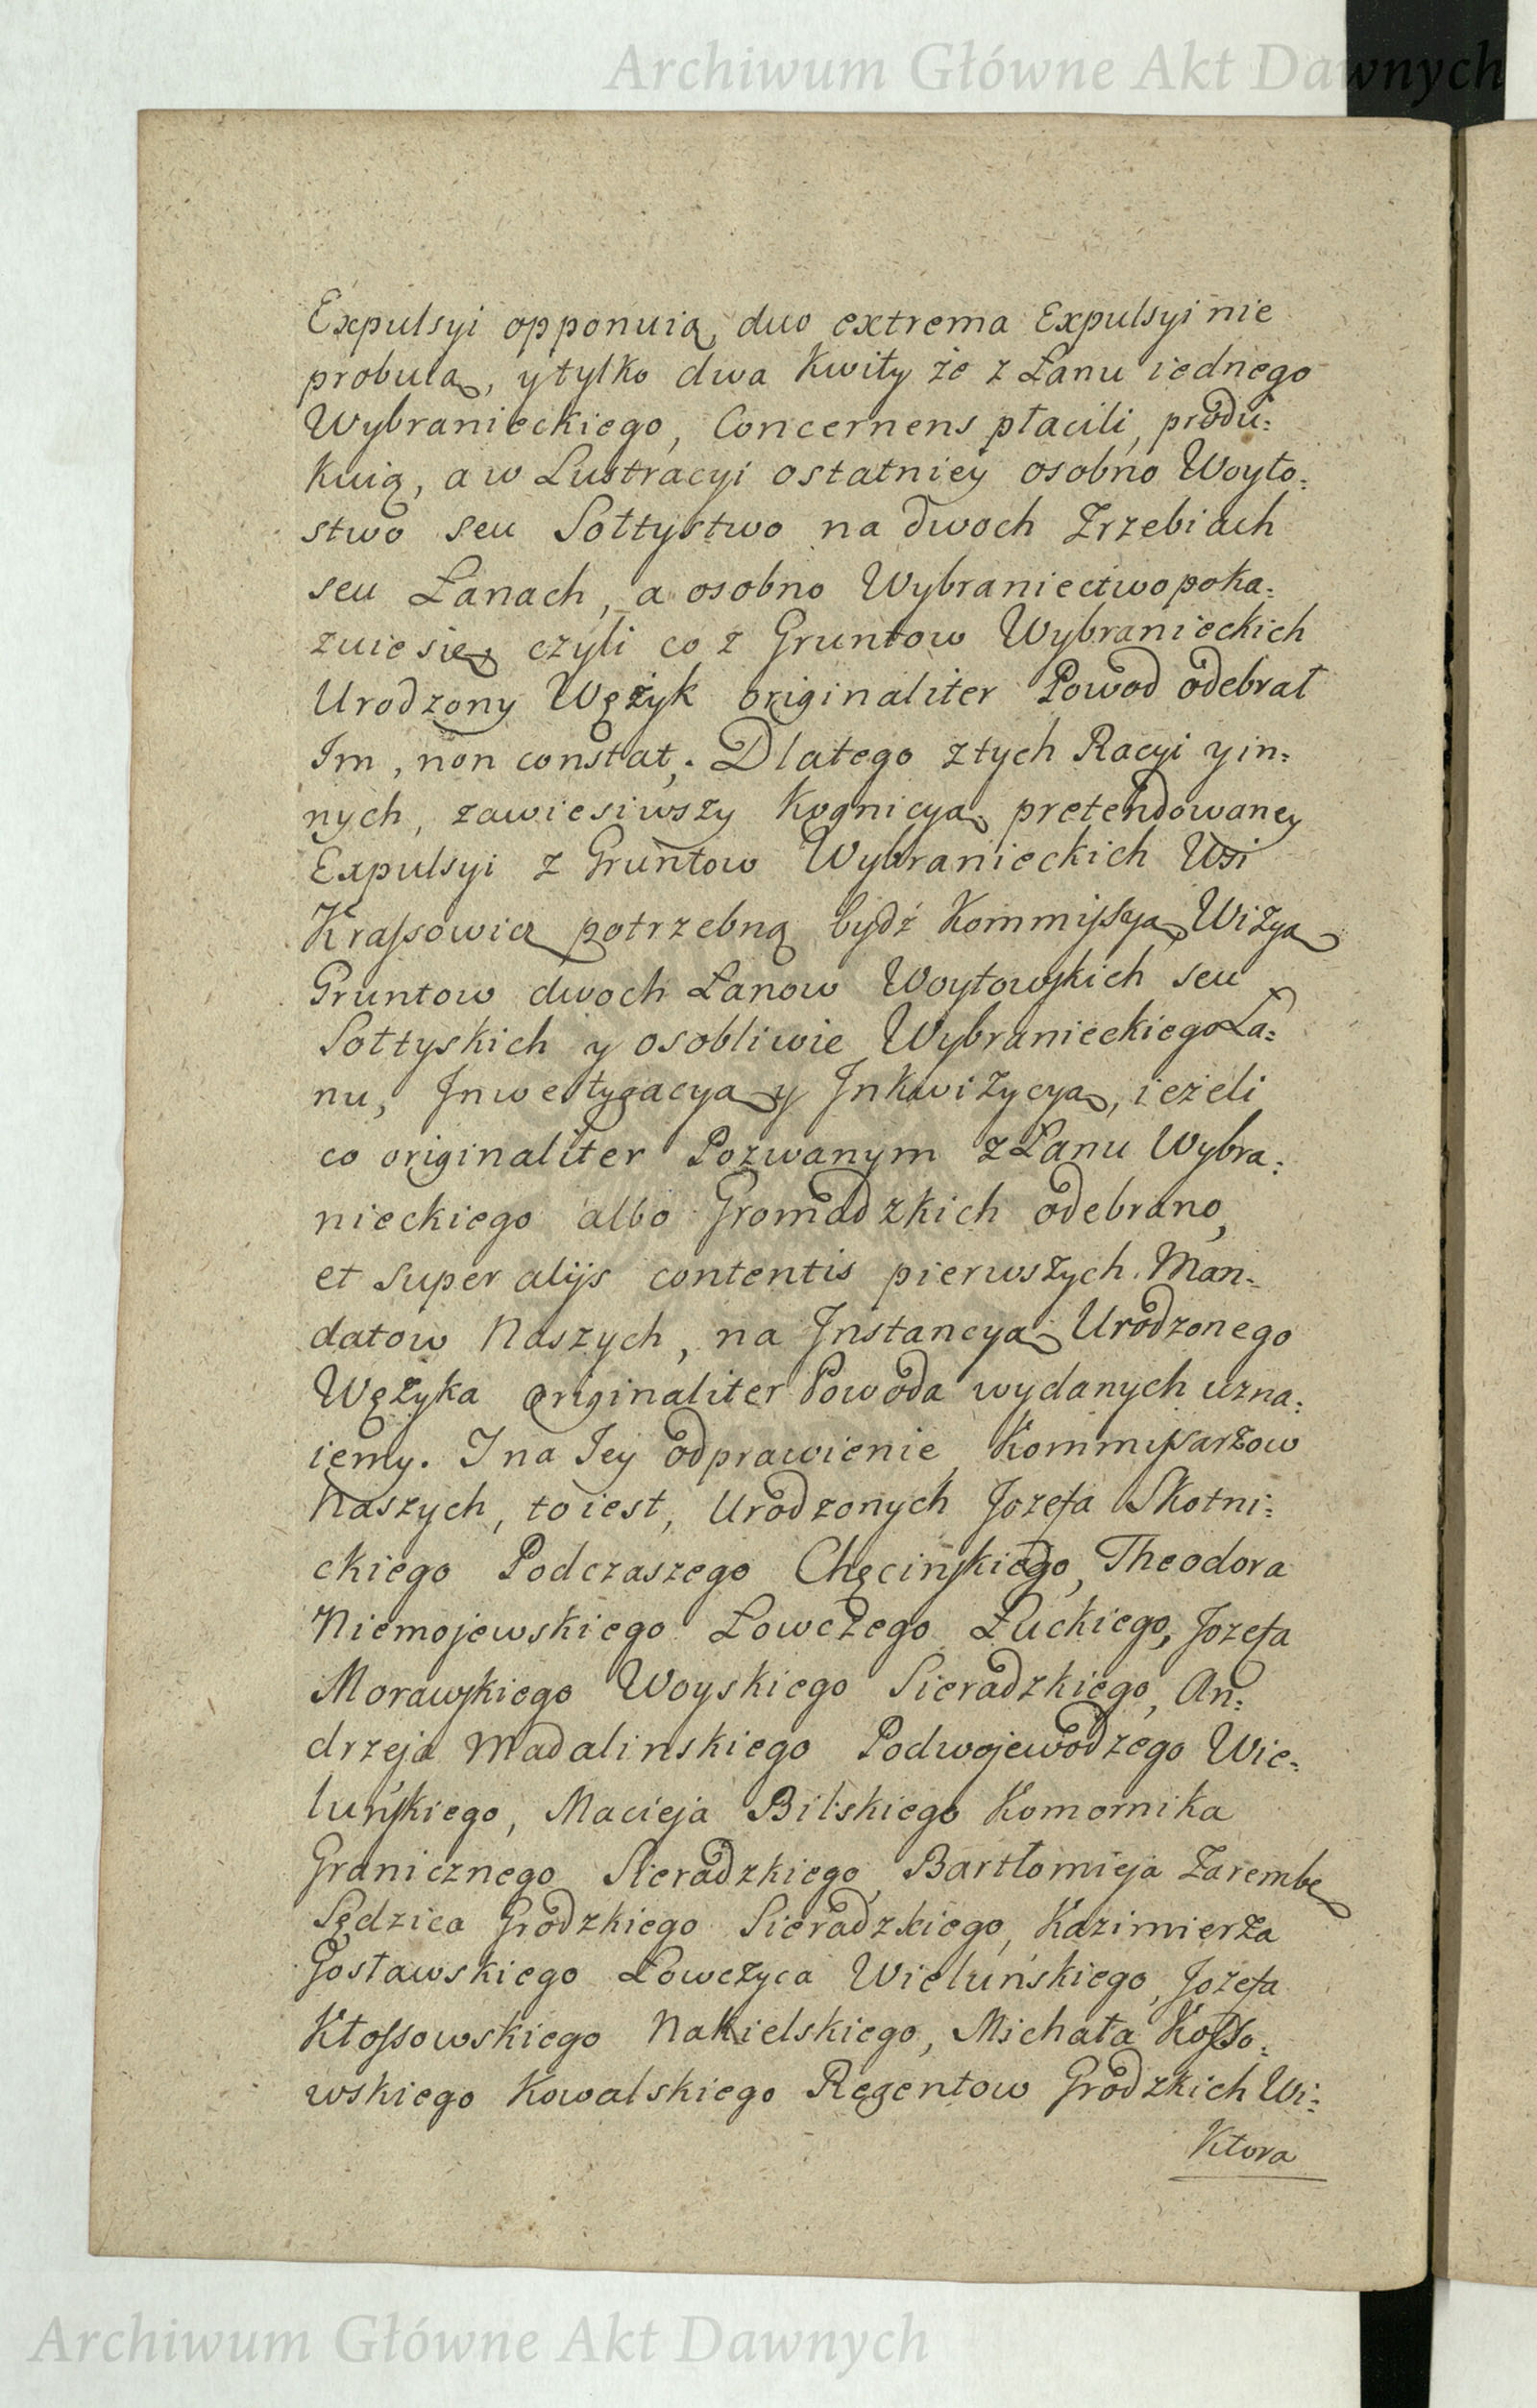 Archiwum Główne Akt Dawnych
Expulsyi opponuią, duo extrema Expulsyi nie
probuią, y tylko dwa Kwity że z Łanu iednego
Wybranieckiego, Concernens płacili, produ=
kuią, a w Lustracyi ostatniey osobno Woyto=
stwo seu Sołtystwo na dwoch Zrzebiach
seu Łanach, a osobno Wybraniectwo poka=
zuie się, czyli co z Gruntow Wybranieckich
Urodzony Wężyk originaliter Powod odebrał
Im, non constat. Dlatego z tych Racyi y in=
nych, zawiesiwszy Kognicyą pretendowaney
Expulsyi z Gruntow Wybranieckich Wsi
Krassowicz potrzebną bydź Kommissyą, Wizyą
Gruntow dwoch Łanow Woytowskich seu
Sołtyskich y osobliwie Wybranieckiego Ła=
nu, Inwestygacyą y Inkwizycyą, ieżeli
co originaliter Pozwanym z Łanu Wybra=
nieckiego albo Gromadzkich odebrano,
et super alijs contentis pierwszych Man=
datow Naszych, na Instancyą Urodzonego
Wężyka originaliter Powoda wydanych uzna=
iemy. I na Jey odprawienie Kommissarzow
Naszych, to iest, Urodzonych Jozefa Skotni=
ckiego Podczaszego Chęcinskiego, Theodora
Niemojewskiego Łowczego Łuckiego, Jozefa
Morawskiego Woyskiego Sieradzkiego, An=
drzeja Madalinskiego Podwojewodzego Wie=
luńskiego, Macieja Bilskiego Komornika
Granicznego Sieradzkiego, Bartłomieja Zarembę
Sędzica Grodzkiego Sieradzkiego, Kazimierza
Gosławskiego Łowczyca Wieluńskiego, Jozefa
Kłossowskiego Nakielskiego, Michała Kosso=
wskiego Kowalskiego Regentow Grodzkich Wi=
ktora
Archiwum Główne Akt Dawnych